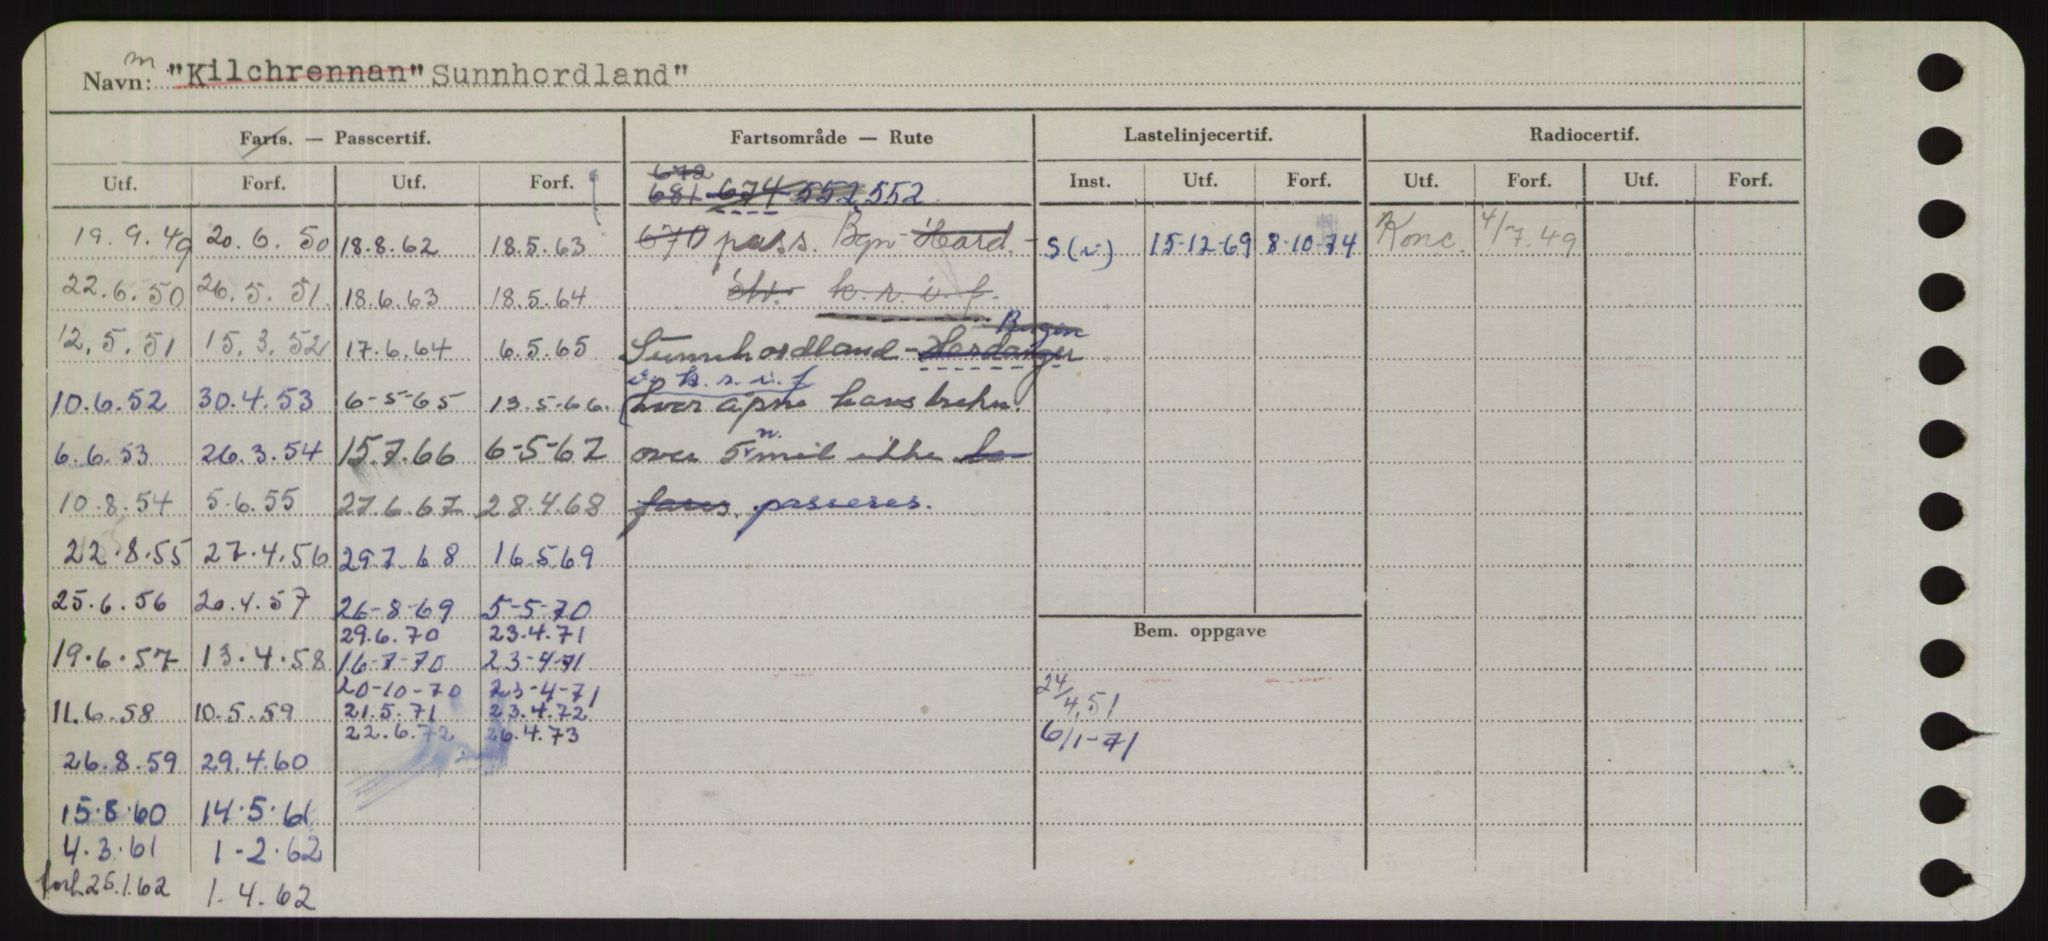 Navn: m "Kilchrennan" Sunnhordland"
Farts. — Passcertif. Fartsområde — Rute Lastelinjecertif. Radiocertif.
Utf. Forf. Utf. Forf. 672 Inst. Utf. Forf. Utf. Forf. Utf. Forf.
681 674 552 552
19.9.49 20.6.50 18.8.62 18.5.63 670 pass. Bgn-Hard.- S(v) 15-12-69 8-10-74 Konc. 4/7.49
22.6.50 26.5.51 18.6.63 18.5.64 k.r.i.f.
Bergen
12.5.51 15.3.52 17.6.64 6.5.65 Sunnhordland - Hardanger
k.r.i.f
10.6.52 30.4.53 6-5-65 13.5-66. hvor åpne havstrekn.
6.6.53 26.3.54 15.7.66 6-5-67 over 5 n. mil ikke be-
10.8.54 5.6.55 27.6.67 28.4.68 fares. passeres.
22.8.55 27.4.56 29.7.68 16.5.69
25.6.56 20.4.57 26-8-69 5-5-70
29.6.70 23.4.71 Bem. oppgave
19.6.57 13.4.58 16-7-70 23-4-71
20-10-70 23-4-71 24/4.51
11.6.58 10.5.59 21.5.71 23.4.72
22.6.72 26.4.73 6/1-71
26.8.59 29.4.60
15.8.60 14.5.61
4.3.61 1-2.62
forl. 25.1.62 1.4.62